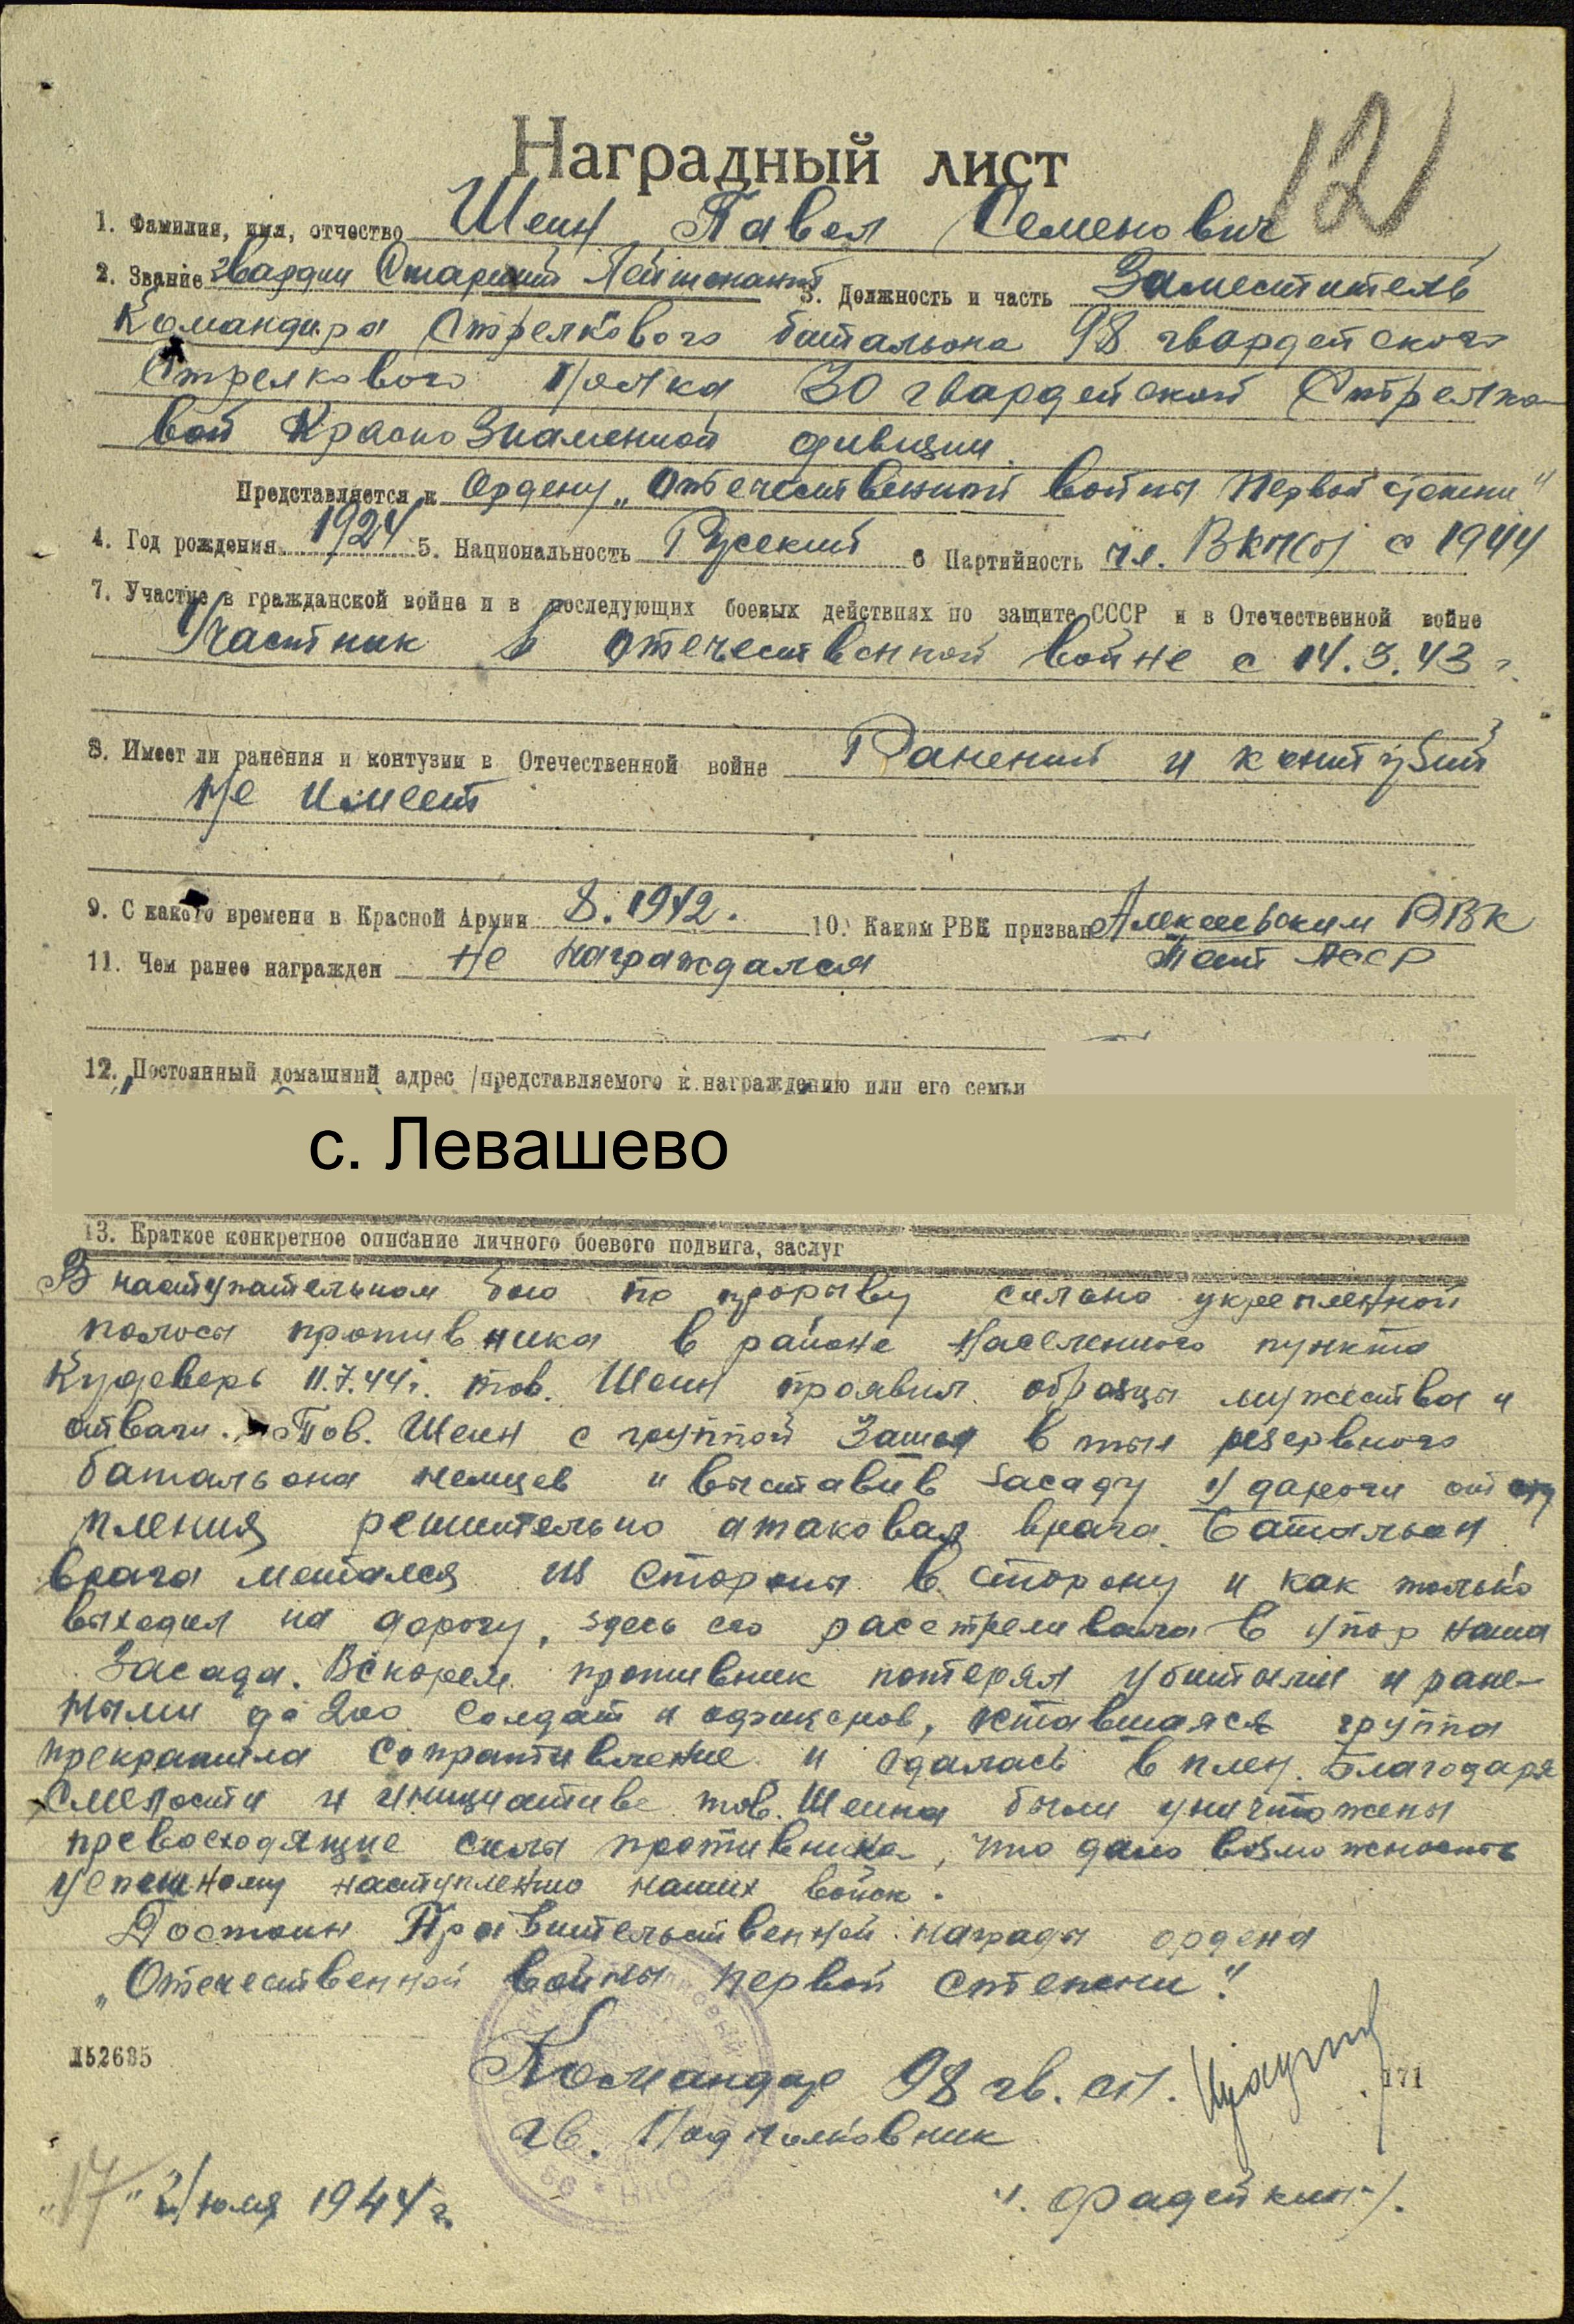 12
Наградный лист
1. Фамилия, имя, отчество Шеин Павел Семенович
2. Звание Гвардии Старший Лейтенант 3. Должность и часть Заместитель
Командира Стрелкового батальона 98 гвардейского
Стрелкового полка 30 гвардейской Стрелко-
вой Краснознаменной дивизии.
Представляется к Ордену „Отечественной войны первой степени"
4. Год рождения 1924 5. Национальность Русский 6 Партийность чл. ВКП(б) с 1944
7. Участие в гражданской войне и в последующих боевых действиях по защите СССР и в Отечественной войне
Участник в отечественной войне с 14.3.43 г.
8. Имеет ли ранения и контузии в Отечественной войне Ранений и контузий
не имеет
9. С какого времени в Красной Армии 8.1942. 10. Каким РВК призван Алексеевским РВК
11. Чем ранее награжден не награждался Тат АССР
12. Постоянный домашний адрес /представляемого к награждению или его семьи
с. Левашево
13. Краткое конкретное описание личного боевого подвига, заслуг
В наступательном бою по прорыву сильно укрепленной
полосы противника в районе населенного пункта
Кудеверь 11.7.44г. тов. Шеин проявил образцы мужества и
отваги. Тов. Шеин с группой зашел в тыл резервного
батальона немцев и выставив засаду у дороги отсту
пления решительно атаковал врага. Батальон
врага метался из стороны в сторону и как только
выходил на дорогу, здесь его расстреливала в упор наша
Засада. Вскорем противник потерял убитыми и ране-
ными до 200 солдат и офицеров, оставшаяся группа
прекратила сопротивление и сдалась в плен. Благодаря
смелости и инициативе тов. Шеина были уничтожены
превосходящие силы противника, что дало возможность
успешному наступлению наших войск.
Достоин Правительственной награды ордена
„Отечественной войны первой степени".
Л52635
Командир 98 гв. сп. 171
гв. Подполковник
„17" июля 1944 г. /. Фадейкин /.